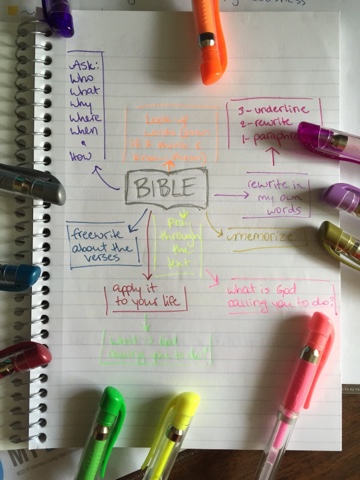 Ask:
Who
What
Why
Where
When
&
How
look up
3-underline
2-rewrite
1-paraphr
BIBLE
rewrite in
my own
words
memorize
Pray
through
the
text
freewrite
about the
verses
apply it
to your life
what is God
calling you to do?